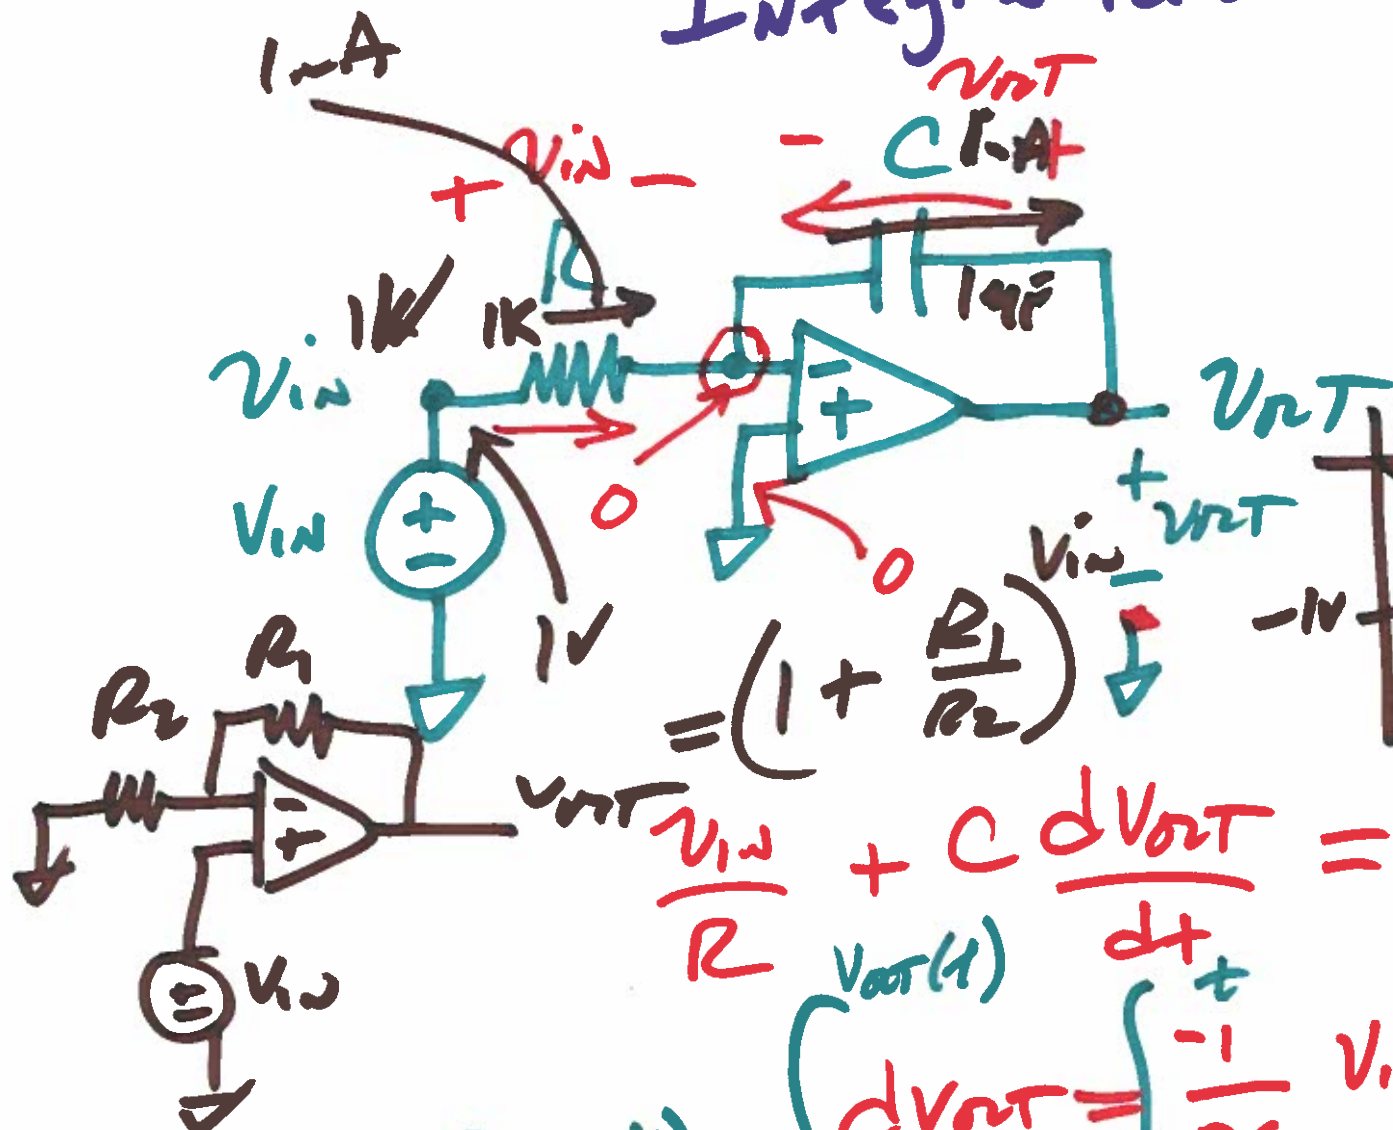 Integrator
1mA
vout
+ vin -
- C 1mA +
R
1V 1K
1µF
vin
- +
vout
Vin
+ -
0
0
+ vout -
1V
vin
-1V
R1
R2
= (1 + R1/R2)
- +
vout
vin/R + C dvout/dt =
Vin
Vout(t)
t
dvout = -1